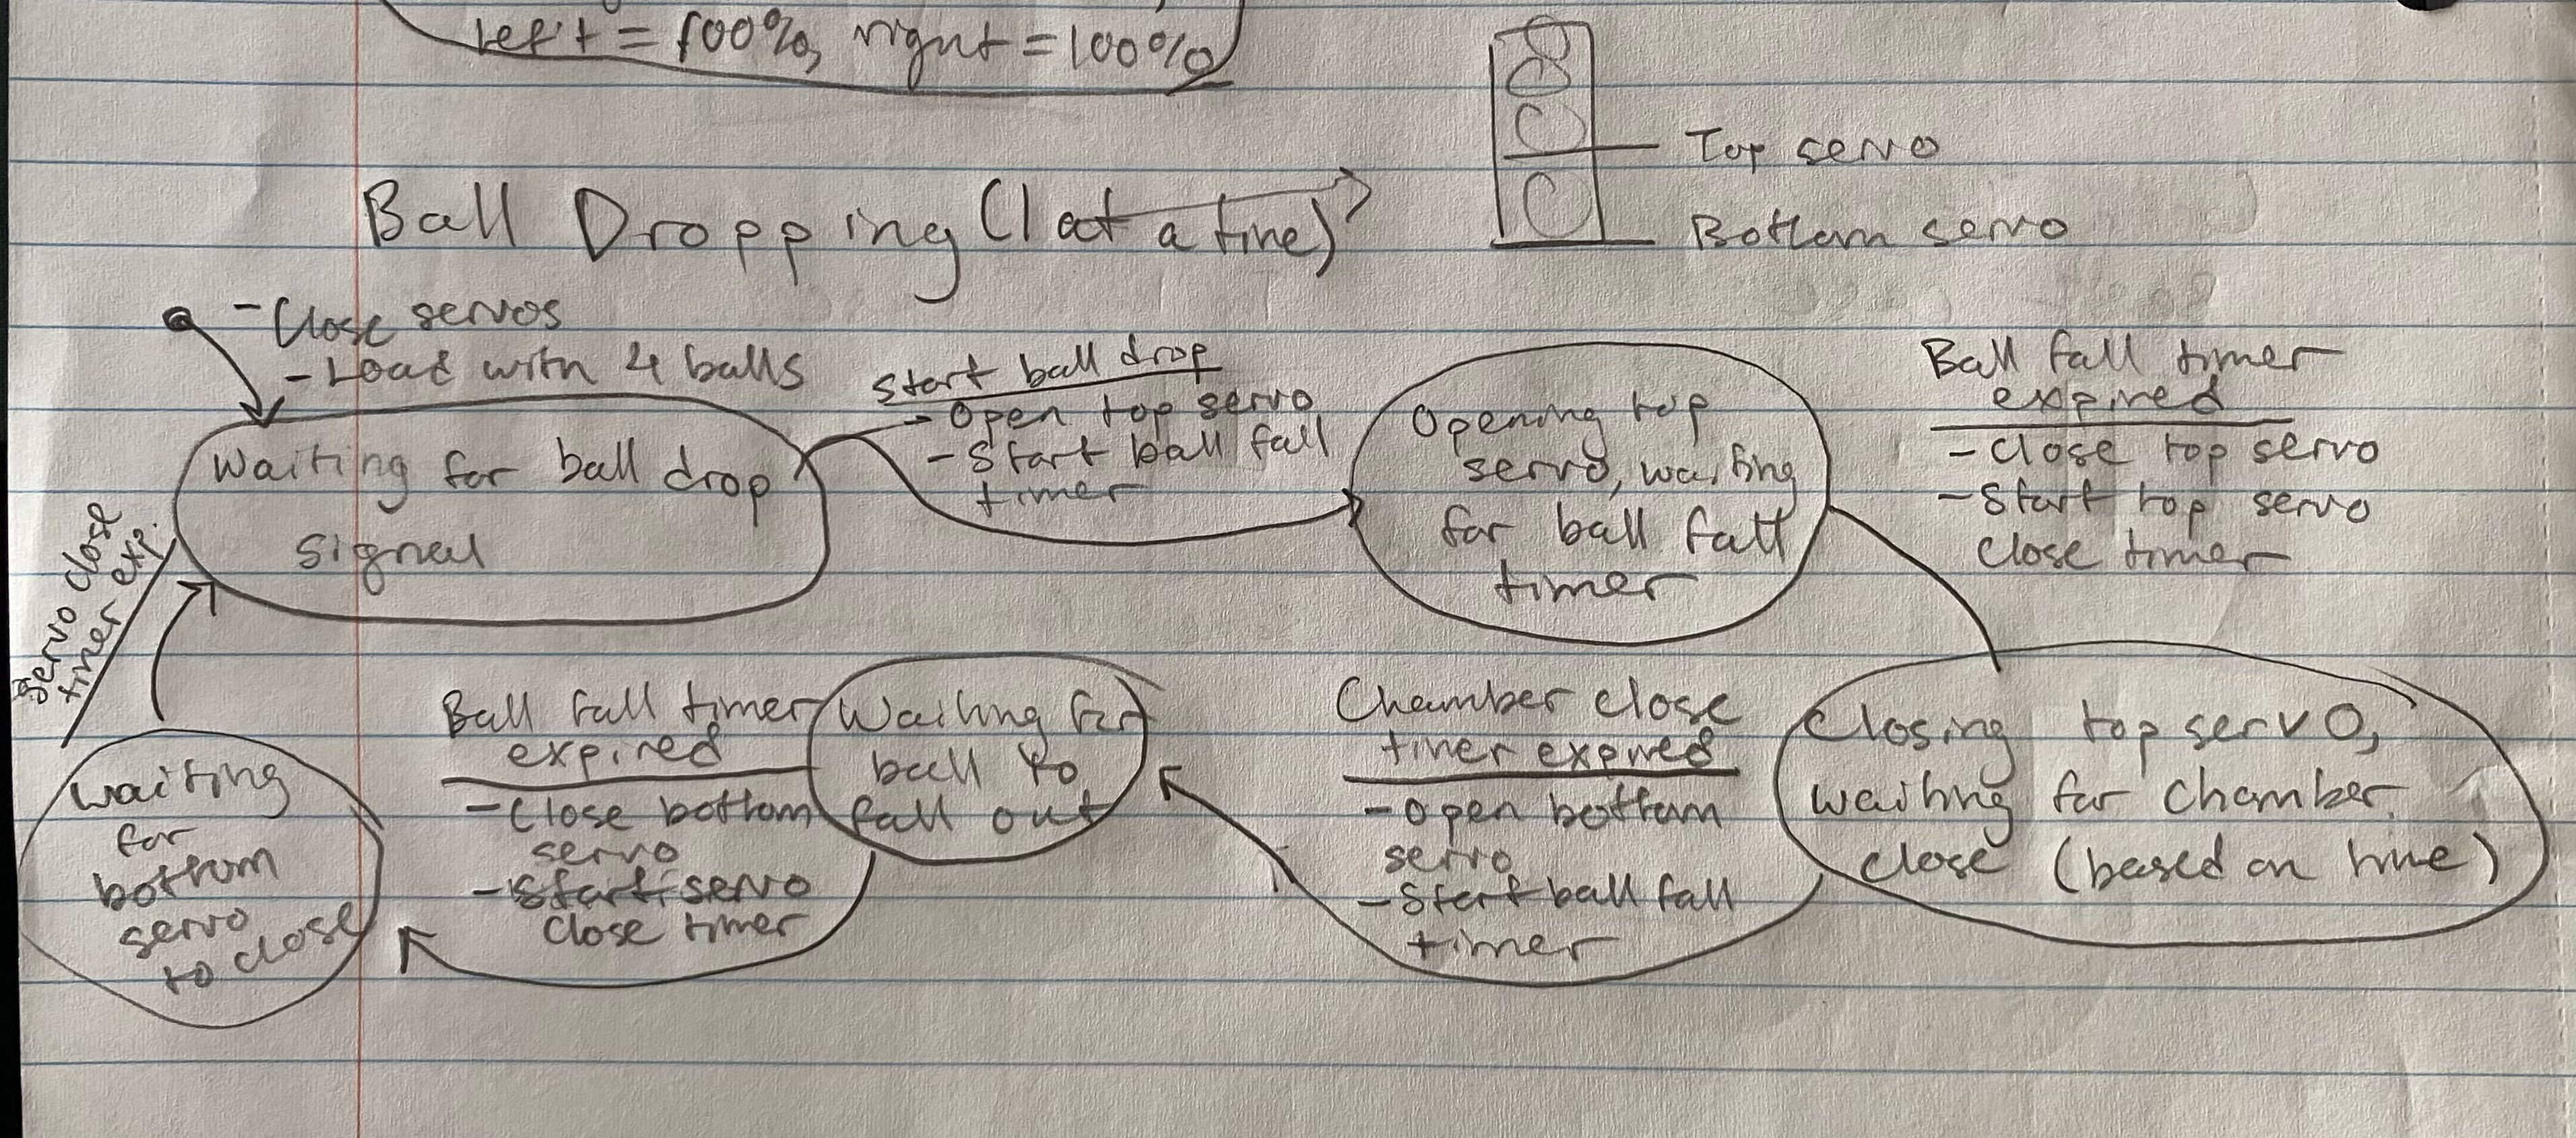 left = 100%, right = 100%
Top servo
Bottom servo
Ball Dropping (1 at a time)
- Close servos
- Load with 4 balls
Waiting for ball drop
signal
Start ball drop
- Open top servo
- Start ball fall
timer
Opening top
servo, waiting
for ball fall
timer
Ball fall timer
expired
- Close top servo
- Start top servo
close timer
Closing top servo,
waiting for chamber
close (based on time)
Chamber close
timer expired
- Open bottom
servo
- Start ball fall
timer
Waiting for
ball to
fall out
Ball fall timer
expired
- Close bottom
servo
- Start servo
close timer
Waiting
for
bottom
servo
to close
Servo close
timer exp.